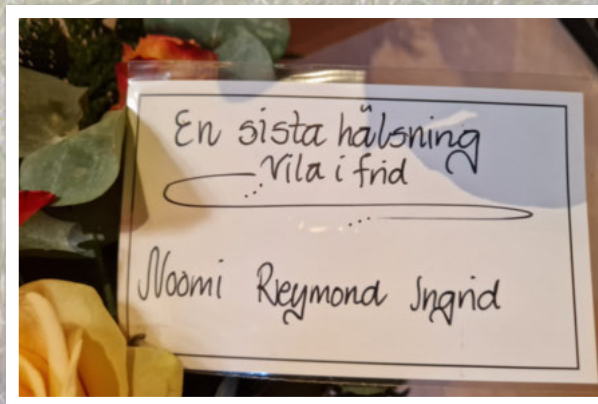 En sista hälsning
Vila i frid
Noomi Reymond Ingrid